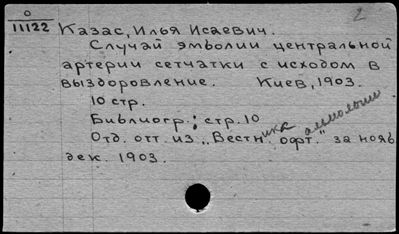 2
О
11122 Казас, Илья Исаевич.
Случай эмболии центральной
артерии сетчатки с исходом в
выздоровление. Киев, 1903.
10 стр.
Библиогр.: стр. 10
Отд. отт. из „Вестника офтальмологии" за нояб
дек. 1903.